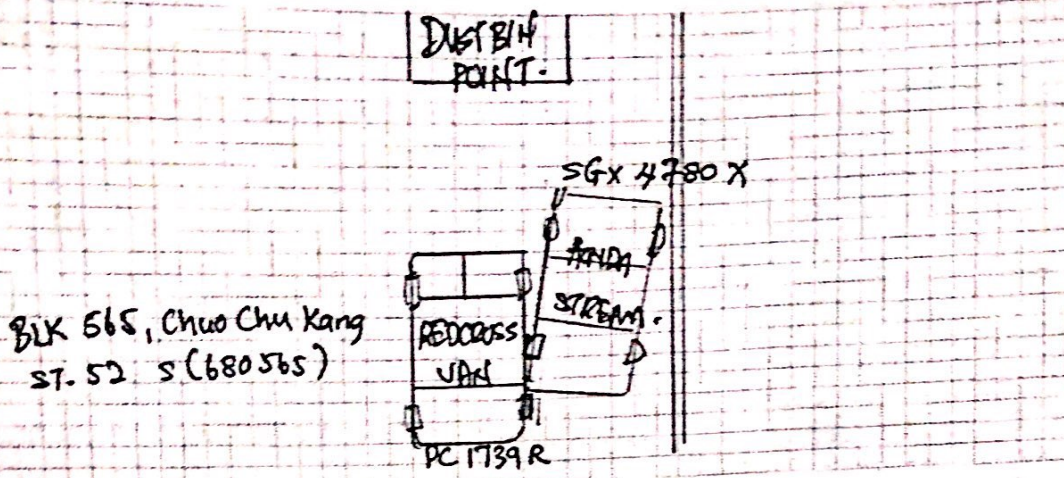 DUSTBIN
POINT.
SGX 4780 X
HONDA
STREAM.
BLK 565, Chuo Chu Kang
ST. 52 S(680565)
REDCROSS
VAN
PC 1739 R